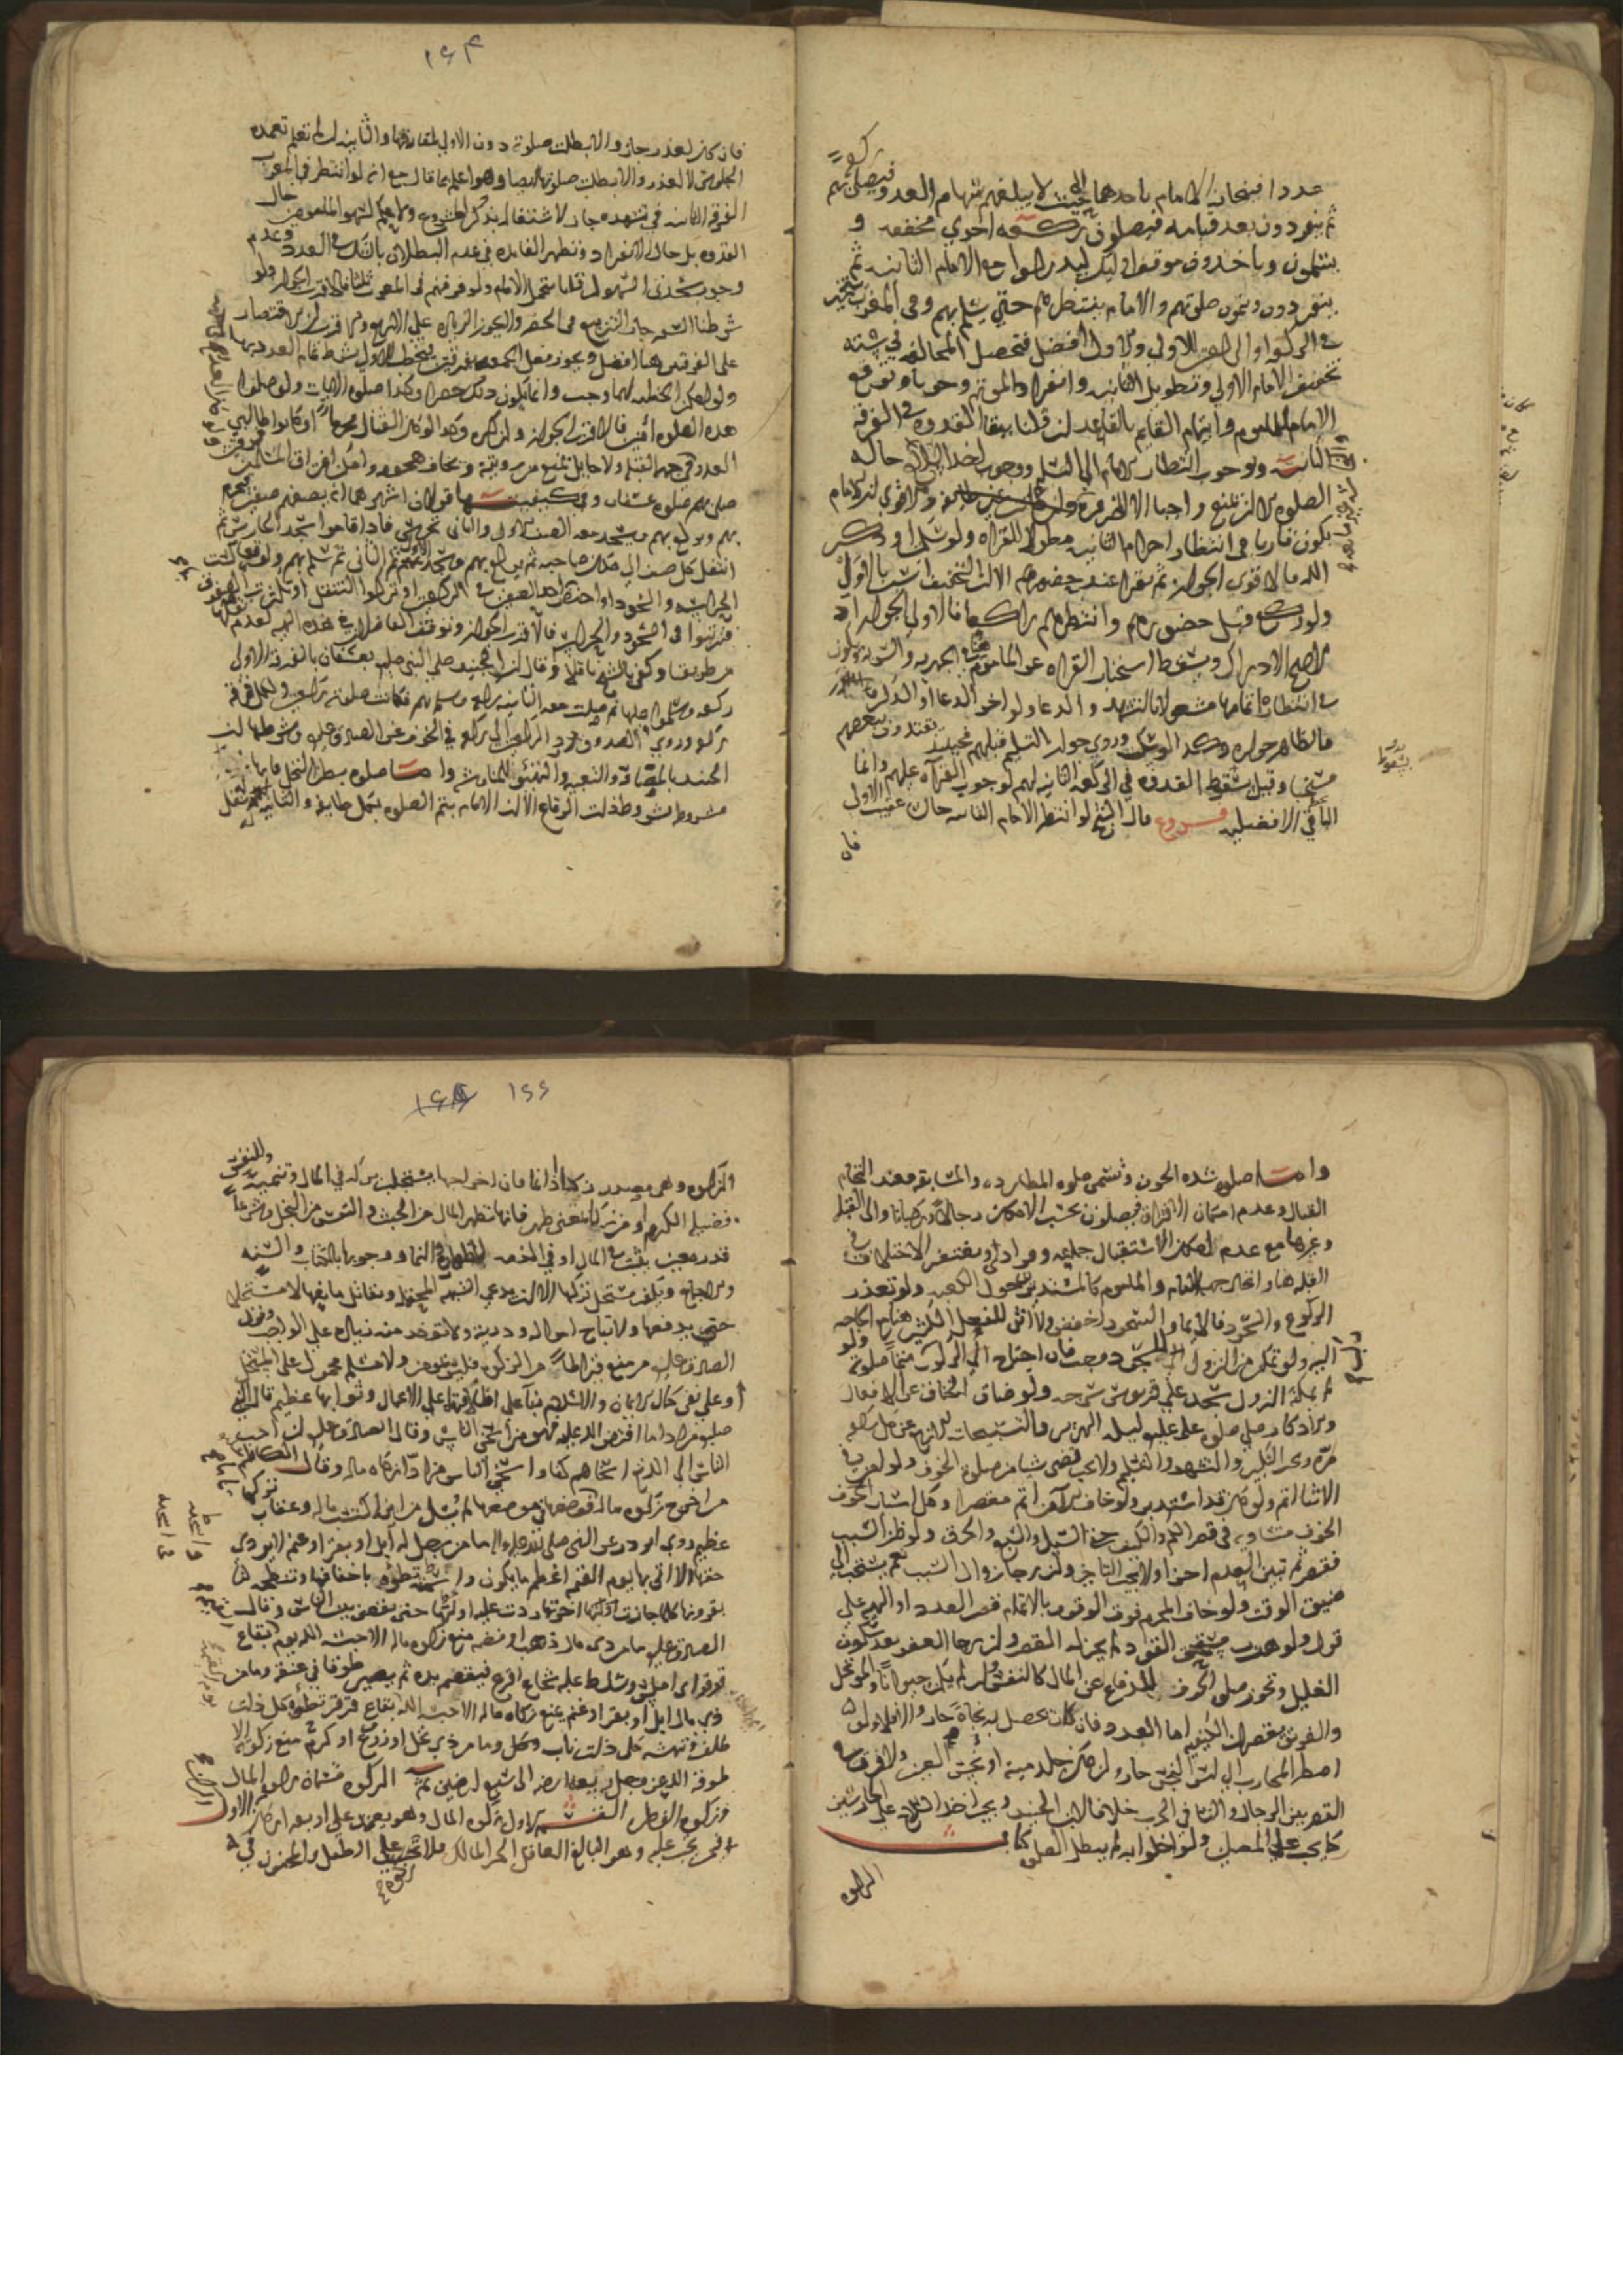 عددا فينحاز الامام باحدهما الى حيث لا يبلغهم سهام العدو فيصلي بهم ركعة
ثم ينفردون بعد قيامه فيصلون ركعة اخرى مخففة و
يسلمون وياخذون موقف اوليك ليدركوا مع الامام الثانية ثم
ينفردون ويتمون صلوتهم والامام ينتظرهم حتى يسلم بهم وفي المغرب يتخير
في الركعة او الركعتين للاولى والاول افضل فتحصل المخالفة في ستة
تخفيف الامام الاولى وتطويل الثانية وانفراد الموتم وجوبا وتوقع
الامام الماموم وايتمام القايم بالقاعد ان قلنا ببقا القدوة في الفرقة
الثانية ووجوب انتظار الامام الى التسليم ووجوب اخذ السلاح حالة
الصلوة الا ان يمنع واجبا الا لضرورة والاقوى ان الامام
يكون قاريا في انتظار احرام الثانية مطولا للقراة ولو سكت او ذكر
الله فالاقوى الجواز ثم يقرا عند حضورهم الا ان التخفيف انسب بالاولى
ولو ركع قبل حضورهم وانتظرهم راكعا فالاولى الجواز اذ
الاصح الادراك ويسقط استحباب القراة عن الماموم في الجهرية والسرية ويكون
في انتظار اتمامها مشغولا بالتشهد والدعا ولو اخر الدعا او الذكر
فالظاهر جوازه وروي جواز التسليم قبلهم فحينئذ يقتدون ببعضهم
مستحبا وقيل يسقط القدوة في الركعة الثانية لهم لوجوب القراة عليهم وانما
الباقي الافضلية فروع قال الشيخ لو انتظر الامام الثانية حال غيبت الاولى
فان
يسقط
١٦٤
فان كان لعذر جاز والا بطلت صلوته دون الاولى لمفارقتها والثانية ان لم تعلم تعمده
الجلوس لا لعذر والا بطلت صلوتها ايضا وهو اعلم بما قال مع انه لو انتظر في المغرب
الفرقة الثانية في تشهده جاز لاشتغاله بذكر مشروع ولا حكم لسهو الماموم حال
القدوة بل حال الانفراد وتظهر الفايدة في عدم البطلان بالشك في العدد وعدم
وجوب سجدتي السهو ان قلنا بتحمل الامام ولو فرقهم في المغرب ثلثا فالاقرب الجواز ولو
شرطنا السفر جاز التربيع في الحضر والجواز الزيادة على الاربع والاقرب ان الاقتصار
على الفرقتين هنا افضل ويجوز فعل الجمعة بفرقتين فيخطب للاولى بشرط تمام العدد بها
ولو امكن الخطبة لهما وجب وانما يكون ذلك حضرا وكذا صلوة الايات ولو صلوا
هذه الصلوة في امن فالاقرب الجواز وان كره وكذا لو كان القتال محرما او كانوا طالبي
العدو في جهة القبلة ولا حايل يمنع من رويته ويخاف هجومه وامكن افتراق المسلمين
صلى بهم صلوة عسفان وفي كيفيتها قولان اشهرهما انه يصفهم صفين ويحرم
بهم ويركع بهم ويسجد معه الصف الاول والثاني يحرس فاذا قاموا سجد الحارس ثم
انتقل كل صف الى مكان صاحبه ثم يركع بهم ويسجد الاول ثم الثاني ثم سلم بهم
الحراسة والسجود او احتص احد الصفين في الركعتين او تركوا التنقل او تكثرت الصفوف
فترتبوا في السجود والحراسة فالاقرب الجواز وتوقف الفاضلان في هذه الهيئة لعدم نقلها
من طريقنا وكفى بالشيخ ناقلا وقال ابن الجنيد صلى النبي صلم بعسفان بالفرقة الاولى
ركعة وسلموا عليها ثم صلت معه الثانية ركعة وسلم بهم فكانت صلوته ركعتين ولكل فرقة
ركعة وروى الصدوق رد الركعتين الى ركعة في الخوف عن الصادق عليه وشرطها ابن
الجنيد بالمصافة والتعبية والتهيؤ للمناوشة واما صلوة بطن النخل فانها
مشروطة بشروط ذات الرقاع الا ان الامام يتم الصلوة بكل طايفة والثانية نفل
واما صلوة شدة الخوف وتسمى صلوة المطاردة والمسايفة فعند التحام
القتال وعدم امكان الافتراق فيصلون بحسب الامكان رجالا وركبانا والى القبلة
وغيرها مع عدم امكان الاستقبال جماعة وفرادى ويغتفر الاختلاف في
القبلة هنا واتحاد جهة الامام والماموم كالمستديرين حول الكعبة ولو تعذر
الركوع والسجود فالايما والسجود اخفض ولا اثر للفعل الكثير هنا مع الحاجة
اليه ولو تمكن من النزول للسجود وجب فان احتاج الى الركوب متمما صلوته ولو
لم يمكنه النزول سجد على قربوس سرجه ولو ضاق الخناق عن الافعال
والاذكار صلى صلوة علي عليه ليلة الهرير فالتسبيحات الاربع عن كل ركعة
مرة ويجب التكبير والتشهد والتسليم ولا يجب قضى شيا من صلوة الخوف ولو امن في
الاثنا اتم ولو كان قد استدبر ولو خاف الامن اتم مقصرا وكل اسباب الخوف
الخوف متساوية في قصر الكم والكيف حتى السيل والسبع والحرق ولو ظن السبب
فقصر ثم تبين العدم اجزا ولا يجب التاخير وان رجا زوال السبب نعم يستحب الى
ضيق الوقت ولو خاف المحرم فوت الوقوف بالاتمام قصر العدد او الهيئة على
قول ولو هرب مستحق القود لم يجز له القصر وان رجا العفو بعد سكون
الغليل وتجوز صلوة الخوف للمدافع عن المال كالنفس وان لم يكن حيوانا والموتحل
والغريق يقصران الكيفية اما العدد فان كانت تحصل به نجاة جاز والا فلا ولو
اضطر المحارب الى لبس النجس جاز وان كان جلد ميتة او نجس العين ولا فرق في
القصر بين الرجال والنسا في الحرب خلافا لابن الجنيد ويجب اخذ السلاح على الحارسين
كما يجب على المصلين ولو اخلوا به لم يبطل الصلوة كتاب
الزكوة
١٦٥ ١٦٦
الزكوة وهي مصدر زكا اذا نما فان اخراجها يستجلب بركة في المال وتنميه وللنفس
فضيلة الكرم او من زكا بمعنى طهر فانها تطهر المال من الخبث والنفس من البخل وشرعا
قدر معين يثبت في المال او في الذمة للطهارة والنما ووجوبها بالكتاب والسنة
والاجماع ويكفر مستحل تركها الا ان يدعي الشبهة المحتملة ويقاتل مانعها لا مستحلا
حتى يدفعها ولا تباح امواله وذريته ولا توخذ منه زيادة على الواجب وقول
الصادق عليه من منع قيراطا من الزكوة فليس بمومن ولا مسلم محمول على المستحل
او على نفي كمال الايمان والاسلام بنا على اطلاقهما على الاعمال وثوابها عظيم قال النبي
صلعم من ادا ما افترض الله عليه فهو من اسخى الناس وقال الصادق عليه ان احب
الناس الى الله تع اسخاهم كفا واسخى الناس من ادا زكاة ماله وقال الكاظم
من اخرج زكوة ماله فوضعها في موضعها لم يسل من اين اكتسب ماله وعقاب تركها
عظيم روى ابو ذر عن النبي صلى الله عليه واله ما من رجل له ابل او بقر او غنم لا يودي
حقها الا اتى بها يوم القيمة اعظم ما يكون واسمنه تطؤه باخفافها وتنطحه
بقرونها كلما جازت اخراها ردت عليه اولاها حتى يقضى بين الناس وقال
الصادق عليه ما من ذي مال ذهب او فضة منع زكوة ماله الا حبسه الله يوم القيمة بقاع
قرقر اي املس وسلط عليه شجاع اقرع فيقضم يده ثم يصير طوقا في عنقه وما من
ذي مال ابل او بقر او غنم يمنع زكاة ماله الا حبسه الله بقاع قرقر تطؤه كل ذات
ظلف وتنهشه كل ذات ناب وكل وما من ذي نخل او زرع او كرم منع زكوته الا
طوقه الله عز وجل ريعة ارضه الى سبع ارضين ثم الزكوة قسمان زكوة المال
وزكوة الفطر القسم الاول زكوة المال وهو يعتمد على اربعة اركان الاول
فيمن يجب عليه وهو البالغ العاقل الحر المالك فلا تجب على الطفل والمجنون في